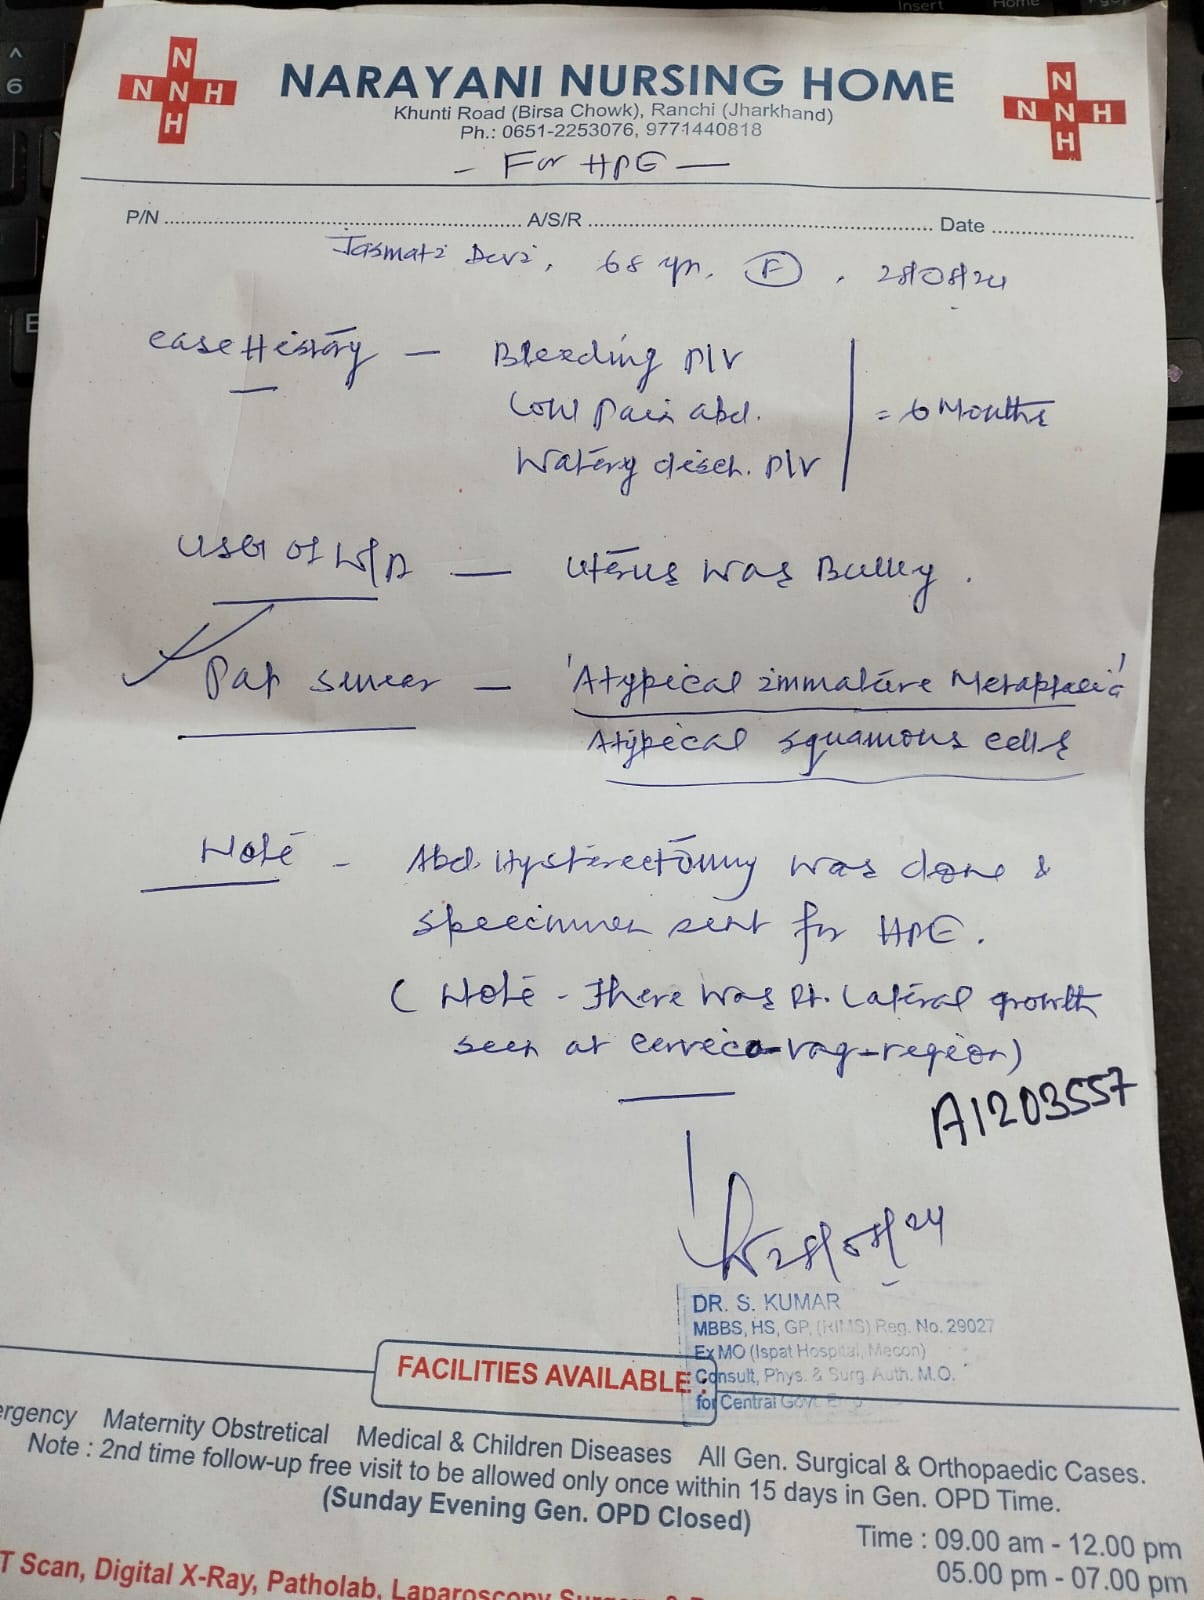 Insert Home
6
E
N
N N H
H
NARAYANI NURSING HOME
N
N N H
H
Khunti Road (Birsa Chowk), Ranchi (Jharkhand)
Ph.: 0651-2253076, 9771440818
- For HPE -
P/N ........ A/S/R ........ Date ........
Jasmati Devi, 68 yrs. F, 28/08/24
Case History - Bleeding P/V
Low Pain abd. = 6 Months
Watery disch. P/V
USG of W/A - Uterus was Bulky.
Pap smear - 'Atypical immature Metaplasia'
Atypical squamous cells
Note - Abd. Hysterectomy was done &
specimen sent for HPE.
(Note - There was Rt. Lateral growth
seen at cervico-vag-region)
A1203557
28/08/24
DR. S. KUMAR
MBBS, HS, GP, (RIMS) Reg. No. 29027
Ex MO (Ispat Hospital, Mecon)
Consult, Phys. & Surg. Auth. M.O.
for Central Govt. Emp.
FACILITIES AVAILABLE :
ergency Maternity Obstretical Medical & Children Diseases All Gen. Surgical & Orthopaedic Cases.
Note : 2nd time follow-up free visit to be allowed only once within 15 days in Gen. OPD Time.
(Sunday Evening Gen. OPD Closed)
Time : 09.00 am - 12.00 pm
05.00 pm - 07.00 pm
T Scan, Digital X-Ray, Patholab, Laparoscopy